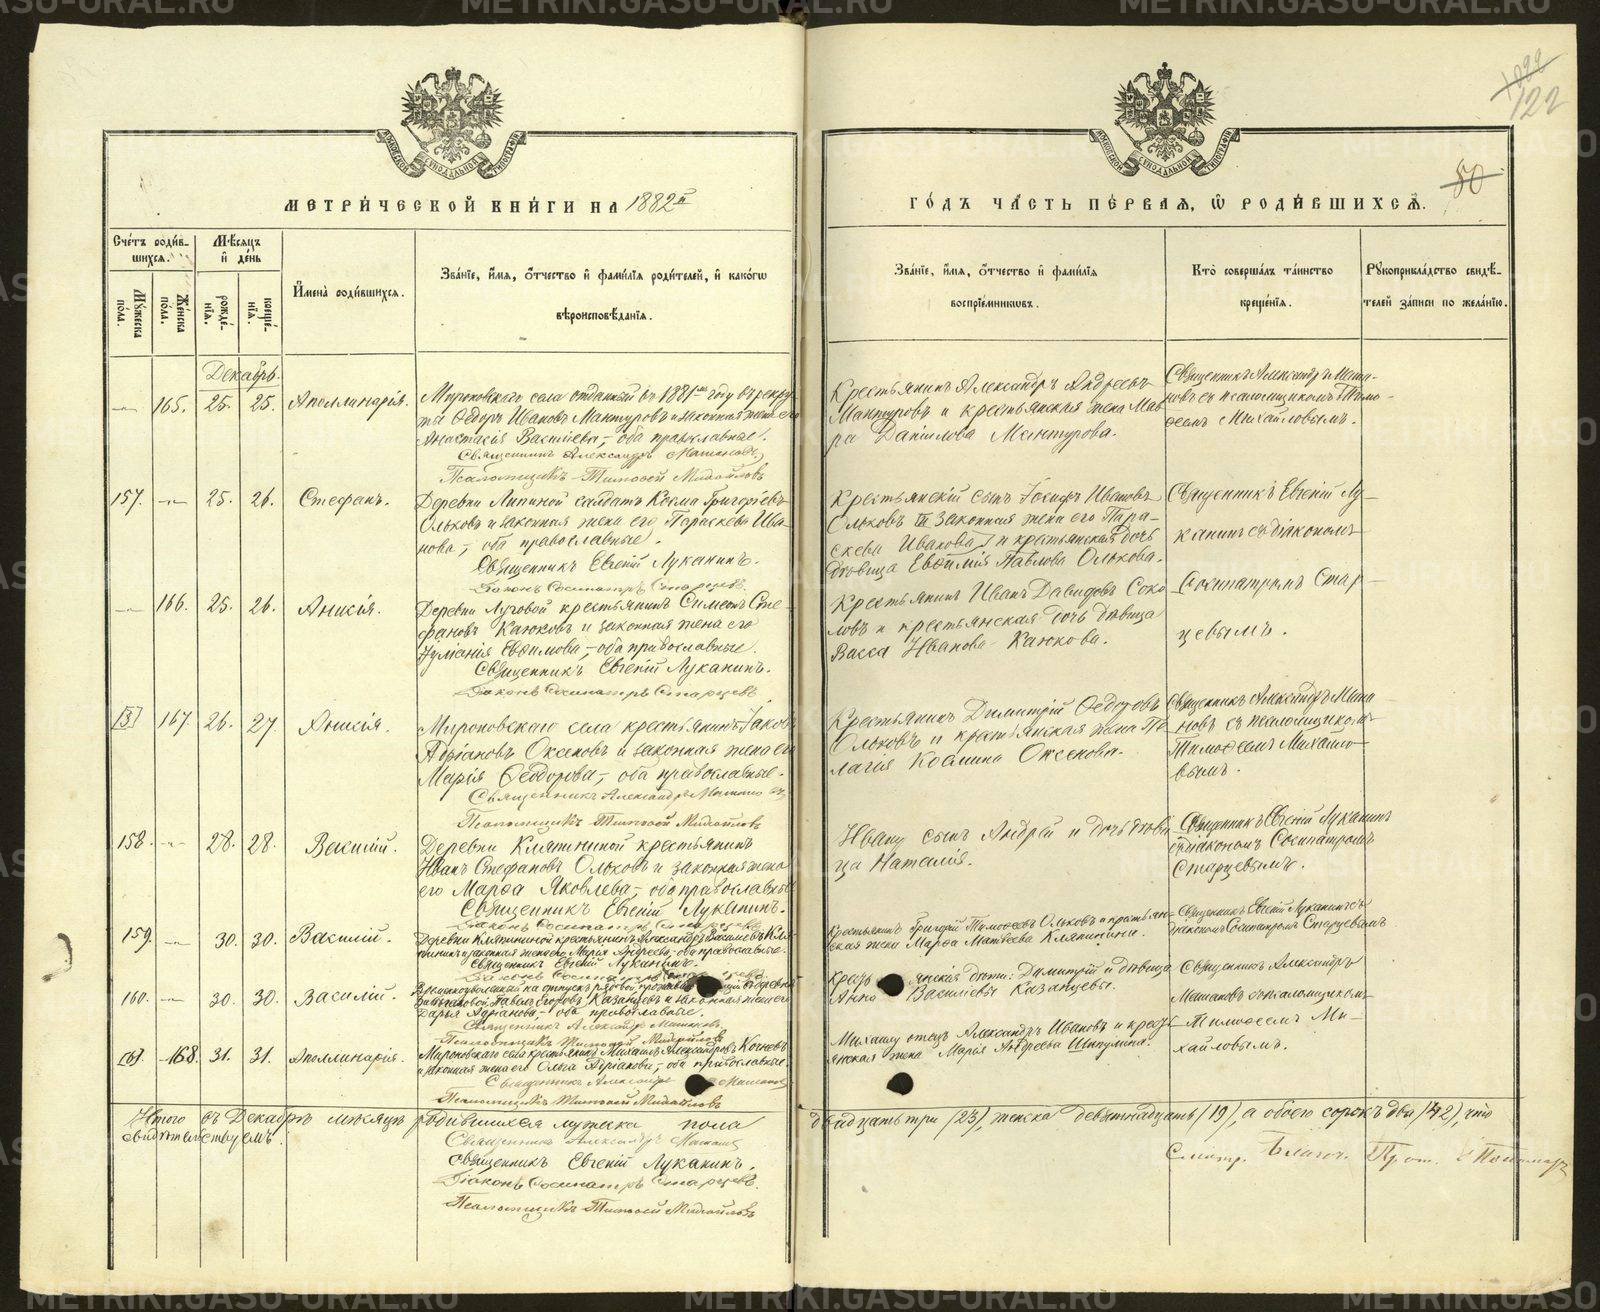 122
122
50
МЕТРИЧЕСКОЙ КНИГИ НА 1882й
ГОДЪ ЧАСТЬ ПЕРВАЯ, Ѡ РОДИВШИХСЯ.
Счетъ родившихся.
Мужеска пола.
Женска пола.
Мѣсяцъ и день
рожденія.
крещенія.
Имена родившихся.
Званіе, имя, отчество и фамилія родителей, и какогѡ
вѣроисповѣданія.
Званіе, имя, отчество и фамилія
воспріемниковъ.
Кто совершалъ таинство
крещенія.
Рукоприкладство свидѣ-
телей записи по желанію.
Декабрь.
165. 25. 25. Аполлинарія.
Мироновскаго села отданный въ 1881мъ году въ рекру-
ты Ѳедоръ Ивановъ Мантуровъ и законная жена его
Анастасія Васильева, оба православные.
Священникъ Александръ
Псаломщикъ Тимоѳей Михайловъ
Крестьянинъ Александръ Андреевъ
Мантуровъ и крестьянская жена Мав-
ра Данилова Мантурова.
Священникъ Александръ
новъ съ псаломщикомъ Тимо-
ѳеемъ Михайловымъ.
157. 25. 26. Стефанъ.
Деревни Липиной солдатъ Косма Григорьевъ
Ольковъ и законная жена его Параскева Ива-
нова, оба православные.
Священникъ Евгеній Луканинъ.
Діаконъ Сосипатръ Старцевъ.
Крестьянскій сынъ Іосифъ Ивановъ
Ольковъ
скева Иванова и крестьянская дочь
дѣвица Евѳимія Павлова Олькова.
Священникъ Евгеній Лу-
канинъ съ діакономъ
Сосипатромъ Стар-
цевымъ.
166. 25. 26. Анисія.
Деревни Луговой крестьянинъ Симеонъ Сте-
фановъ Каюковъ и законная жена его
Евѳимова, оба православные.
Священникъ Евгеній Луканинъ.
Діаконъ Сосипатръ Старцевъ.
Крестьянинъ Иванъ Давидовъ Соко-
ловъ и крестьянская дочь дѣвица
Васса Иванова Каюкова.
[3] 167. 26. 27. Анисія.
Мироновскаго села крестьянинъ Іаковъ
Адріановъ Оксеновъ и законная жена его
Марія Ѳеодорова, оба православные.
Священникъ Александръ
Псаломщикъ Тимоѳей Михайловъ
Крестьянинъ Димитрій Ѳедоровъ
Ольковъ и крестьянская жена Пе-
лагія Козмина Оксенова.
Священникъ Александръ
новъ съ псаломщикомъ
Тимоѳеемъ Михайло-
вымъ.
158. 28. 28. Василій.
Деревни Кляпиной крестьянинъ
Иванъ Стефановъ Ольковъ и законная жена
его Марѳа Яковлева, оба православные
Священникъ Евгеній Луканинъ.
Діаконъ Сосипатръ Старцевъ
Ивану сынъ Андрей и дочь дѣви-
ца Наталія.
Священникъ Евгеній Луканинъ
съ діакономъ Сосипатромъ
Старцевымъ.
159. 30. 30. Василій.
Деревни Кляпиной крестьянинъ Александръ Васильевъ Кля-
пининъ и законная жена его Марія Андреева, оба православные.
Священникъ Евгеній Луканинъ.
Діаконъ Сосипатръ
Крестьянинъ Григорій Тимоѳеевъ Ольковъ и крестьян-
ская жена Марѳа Матвѣева Кляпинина.
Священникъ Евгеній Луканинъ съ
діакономъ Сосипатромъ Старцевымъ
160. 30. 30. Василій.
Временноуволенный на отпускъ рядовой деревни
Павелъ Егоровъ Казанцевъ и законная жена его
Дарья Адріанова, оба православные.
Священникъ Александръ
Псаломщикъ Тимоѳей Михайловъ
Крестьянскія дѣти: Димитрій и дѣвица
Анна Васильевы Казанцевы.
Священникъ Александръ
съ псаломщикомъ
Тимоѳеемъ Ми-
хайловымъ.
168. 31. 31. Аполлинарія.
Мироновскаго села крестьянинъ Михаилъ Александровъ Кочневъ
и законная жена его Ольга Адріанова, оба православные.
Священникъ Александръ
Псаломщикъ Тимоѳей Михайловъ
Михаилу отецъ Александръ Ивановъ и кресть-
янская жена Марія Андреева Шипулина.
Итого въ Декабрѣ мѣсяцѣ родившихся мужска пола
двадцать три (23), женска девятнадцать (19), а обоего сорокъ два (42), что
свидѣтельствуемъ.
Священникъ Александръ
Священникъ Евгеній Луканинъ.
Діаконъ Сосипатръ Старцевъ.
Псаломщикъ Тимоѳей Михайловъ
Смотр. Благоч. Прот.
METRIKI.GASO-URAL.RU